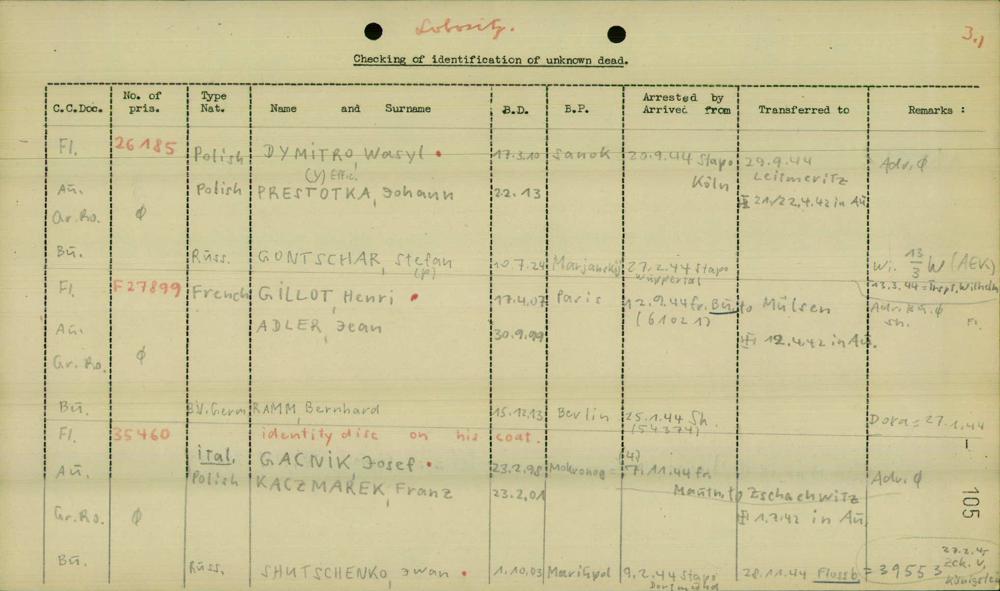 Lobositz.
3.)
Checking of identification of unknown dead.
C.C.Doc. No. of pris. Type Nat. Name and Surname B.D. B.P. Arrested by Arrived from Transferred to Remarks :
Fl. 26185 Polish DYMITRO, Wasyl • 17.3.10 Sanok 20.9.44 Stapo Köln 29.9.44 Leitmeritz Adr. Ø
(y) Effic.
Au. Polish PRESTOTKA, Johann 22. 13 21/22.4.42 in Au.
Gr.Ro. Ø
Bu. Russ. GONTSCHAR, Stefan 10.7.24 Marjanskij 27.2.44 Stapo Wuppertal Wi. 13/3 W (AEK)
13.3.44 = Trspt. Wilhelm
Fl. F27899 French GILLOT, Henri • 17.4.07 Paris 12.9.44 fr. Bu. to Mülsen
(61021)
Au. ADLER, Jean 30.9.99 12.4.42 in Au.
Gr.Ro. Ø
Bu. BV.Germ RAMM, Bernhard 15.12.13 Berlin 25.1.44 Sh. Dora = 27.1.44
(54374)
Fl. 35460 identity disc on his coat.
ital. GACNIK, Josef • 23.2.98 Mokronog 7.11.44 fr. Adr. Ø
Au. Polish KACZMAREK, Franz 23.2.01 Mauth. to Zschachwitz
Gr.Ro. Ø 1.7.42 in Au.
105
Bu. Russ. SHUTSCHENKO, Iwan • 1.10.03 Mariupol 9.2.44 Stapo Dortmund 28.11.44 Flossb = 39553
27.2.45
zck. v.